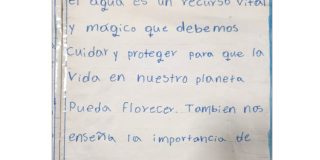 el agua es un recurso vital
y mágico que debemos
Cuidar y proteger para que la
Vida en nuestro planeta
Pueda florecer. Tambien nos
enseña la importancia de